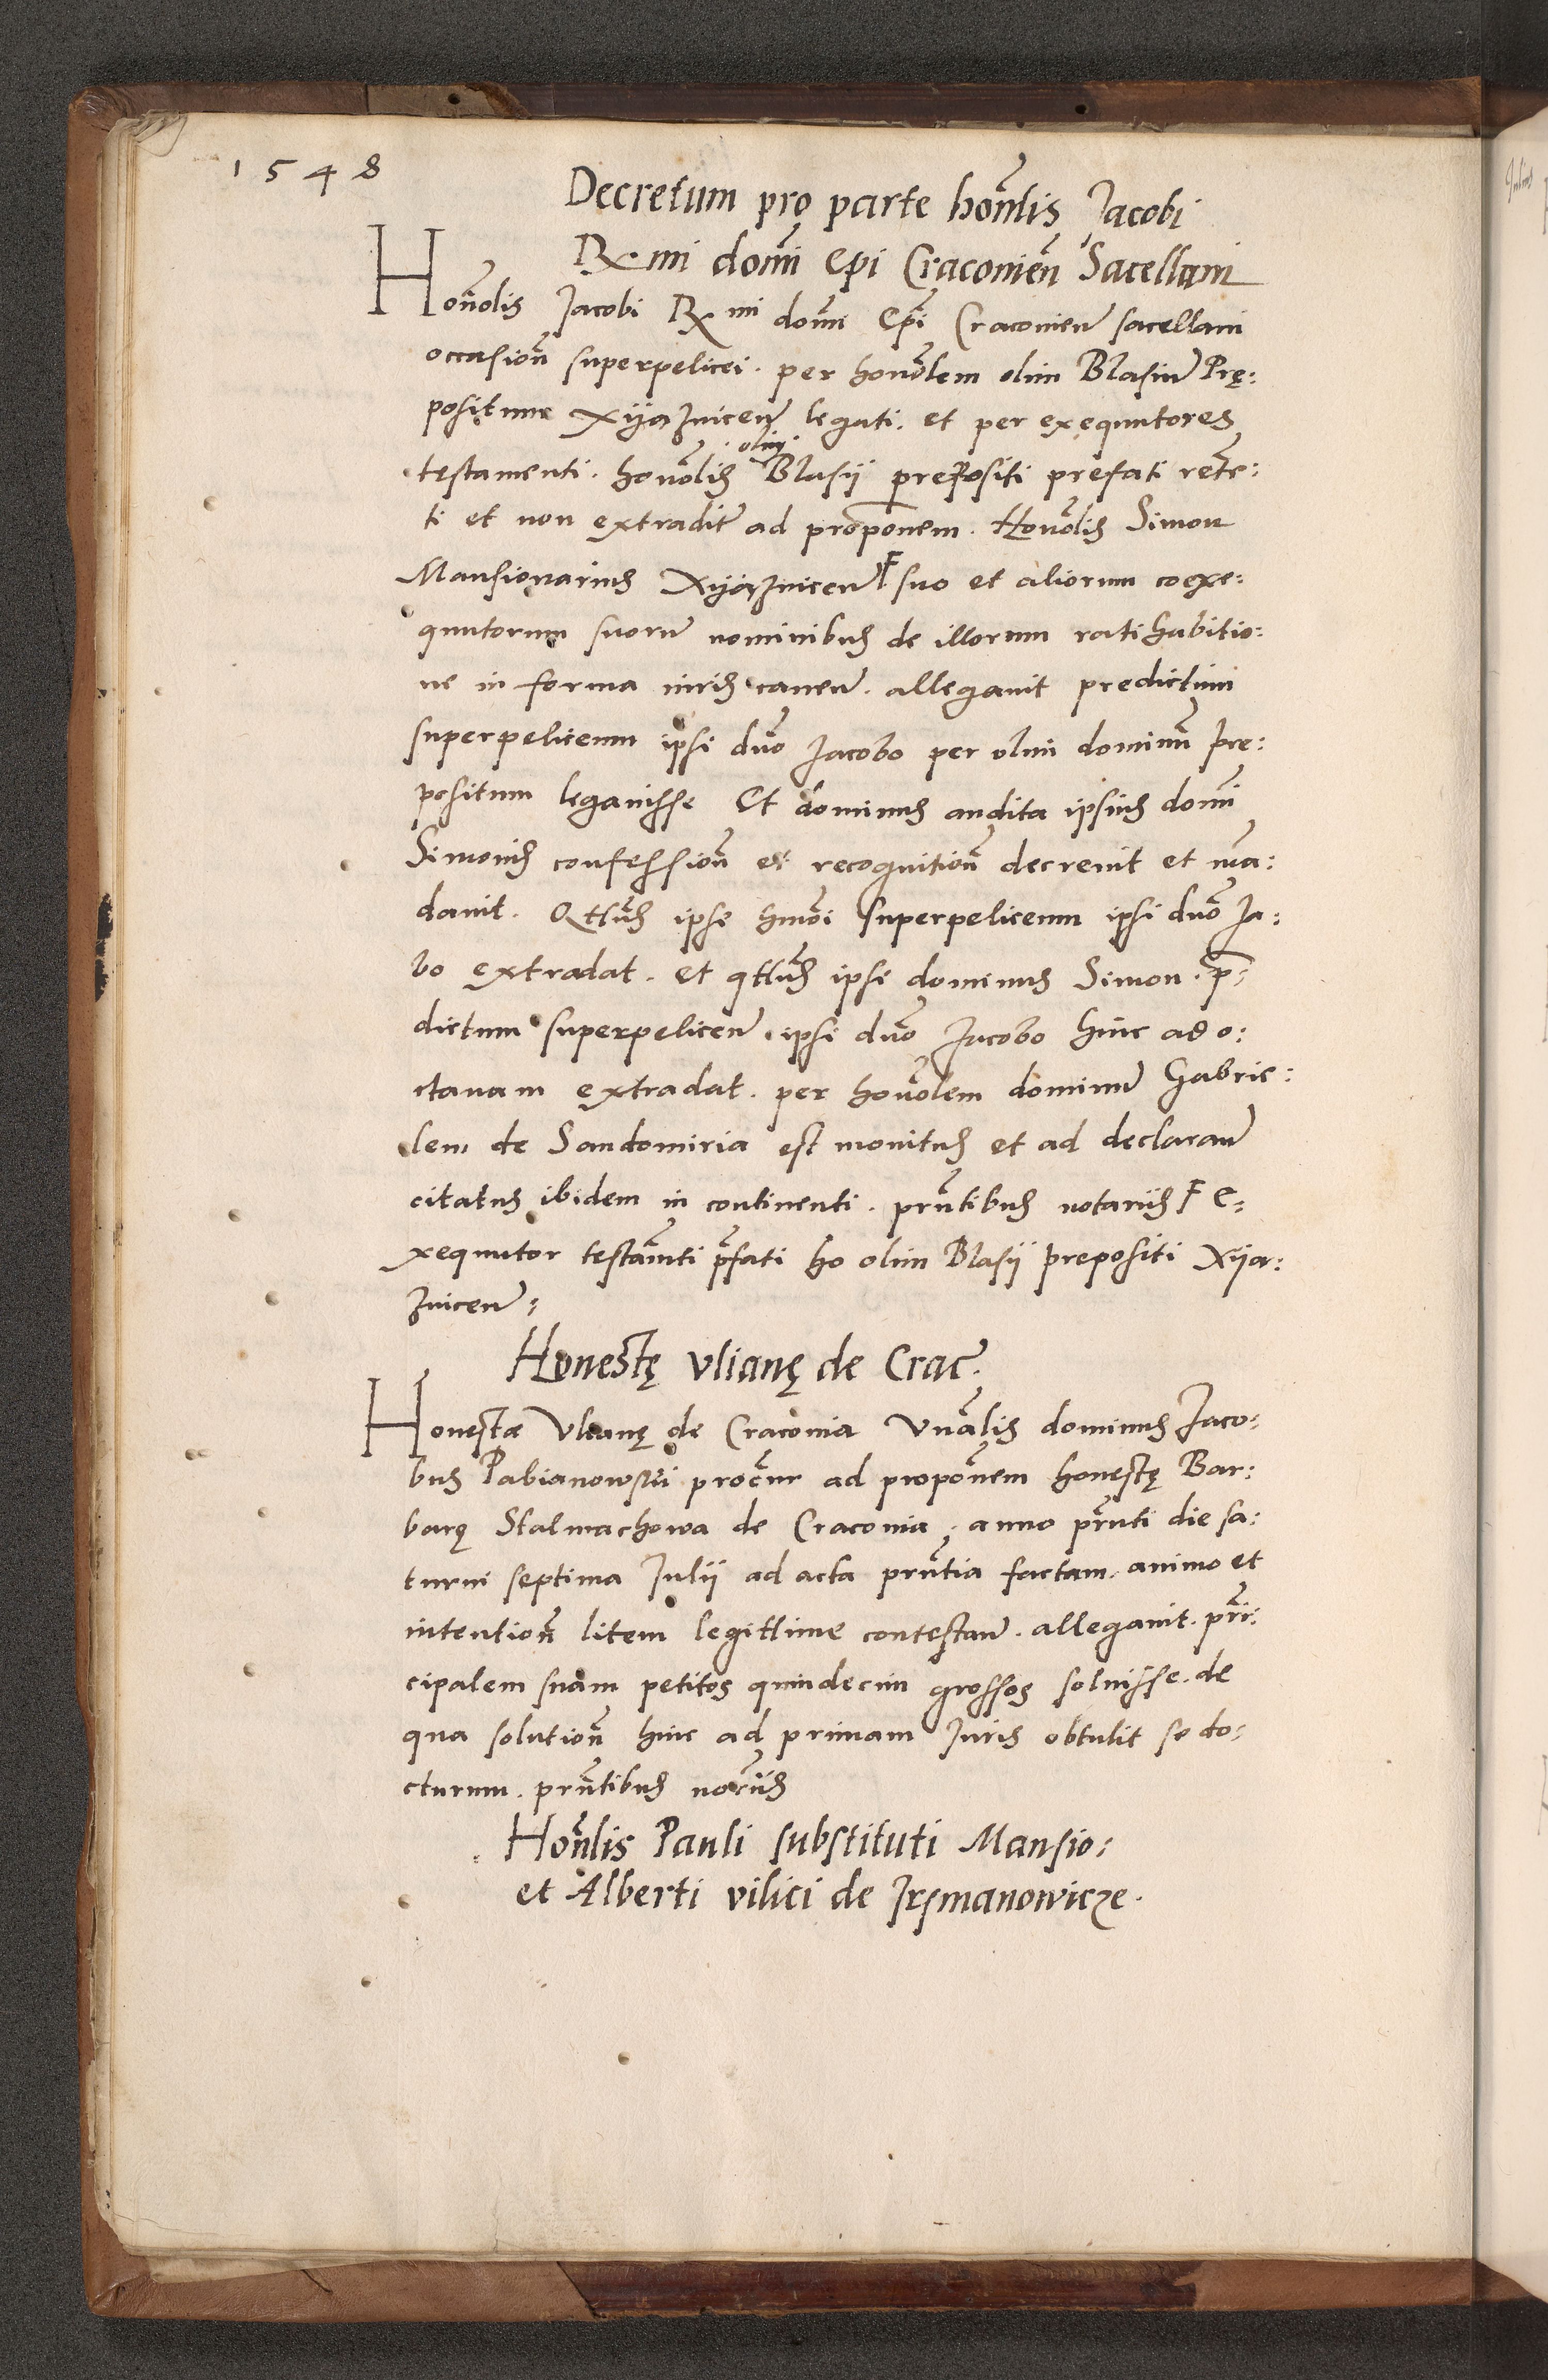 1548
Decretum pro parte hon̄lis Jacobi
Rx mi domi Epi Craconien̄ Sacellani
Honōlis Jacobi Rx mi domi Epi Craconien̄ sacellani
occasion̄ superpelicei. per honōlem olim Blasiū Prę:
positum Xyąznicen̄ legati. et per exequutores
olim
testamenti. honōlis Blasii prepositi prefati reten:
ti et non extradit̄ ad propōnem. Honōlis Simon
Mansionarius Xyąznicen̄ F suo et aliorum coexe:
quutorum suorū nominibus de illorum ratihabitio:
ne in forma iuris cauen̄. allegauit predictum
superpeliceum ipsi dn̄o Jacobo per olim dominū pre:
positum legauisse Et dominus audita ipsius domi
Simonis confession̄ et recognition̄ decreuit et mā:
dauit. Qt̄t̄us ipse hmōi superpeliceum ipsi dn̄o Ja:
bo extradat. et qt̄t̄us ipsi dominus Simon. p̄:
dictum superpeliceū ipsi dn̄o Jacobo hinc ad o:
ctauam extradat. per honōlem dominū Gabrie:
lem de Sandomiria est monitus et ad declaran̄
citatus ibidem in continenti. prn̄tibus notariis F E:
xequutor testam̄ti p̄fati ho olim Blasii prepositi Xyą:
znicen̄:
Honestę vlianę de Crac̄.
Honestæ Vlianę de Craconia Vn̄alis dominus Jaco:
bus Pabianowski proc̄ur ad propōnem honestę Bar:
barę Stalmachowa de Craconia, anno prn̄ti die sa:
turni septima Julii ad acta prn̄tia factam. animo et
intention̄ litem legittime contestan̄. allegauit. prī:
cipalem suam petitos quindecim grossos soluisse. de
qua solution̄ hinc ad primam Juris obtulit se do:
cturum. prn̄tibus not̄iis
Hon̄lis Pauli substituti Mansio:
et Alberti vilici de Irzmanowicze.